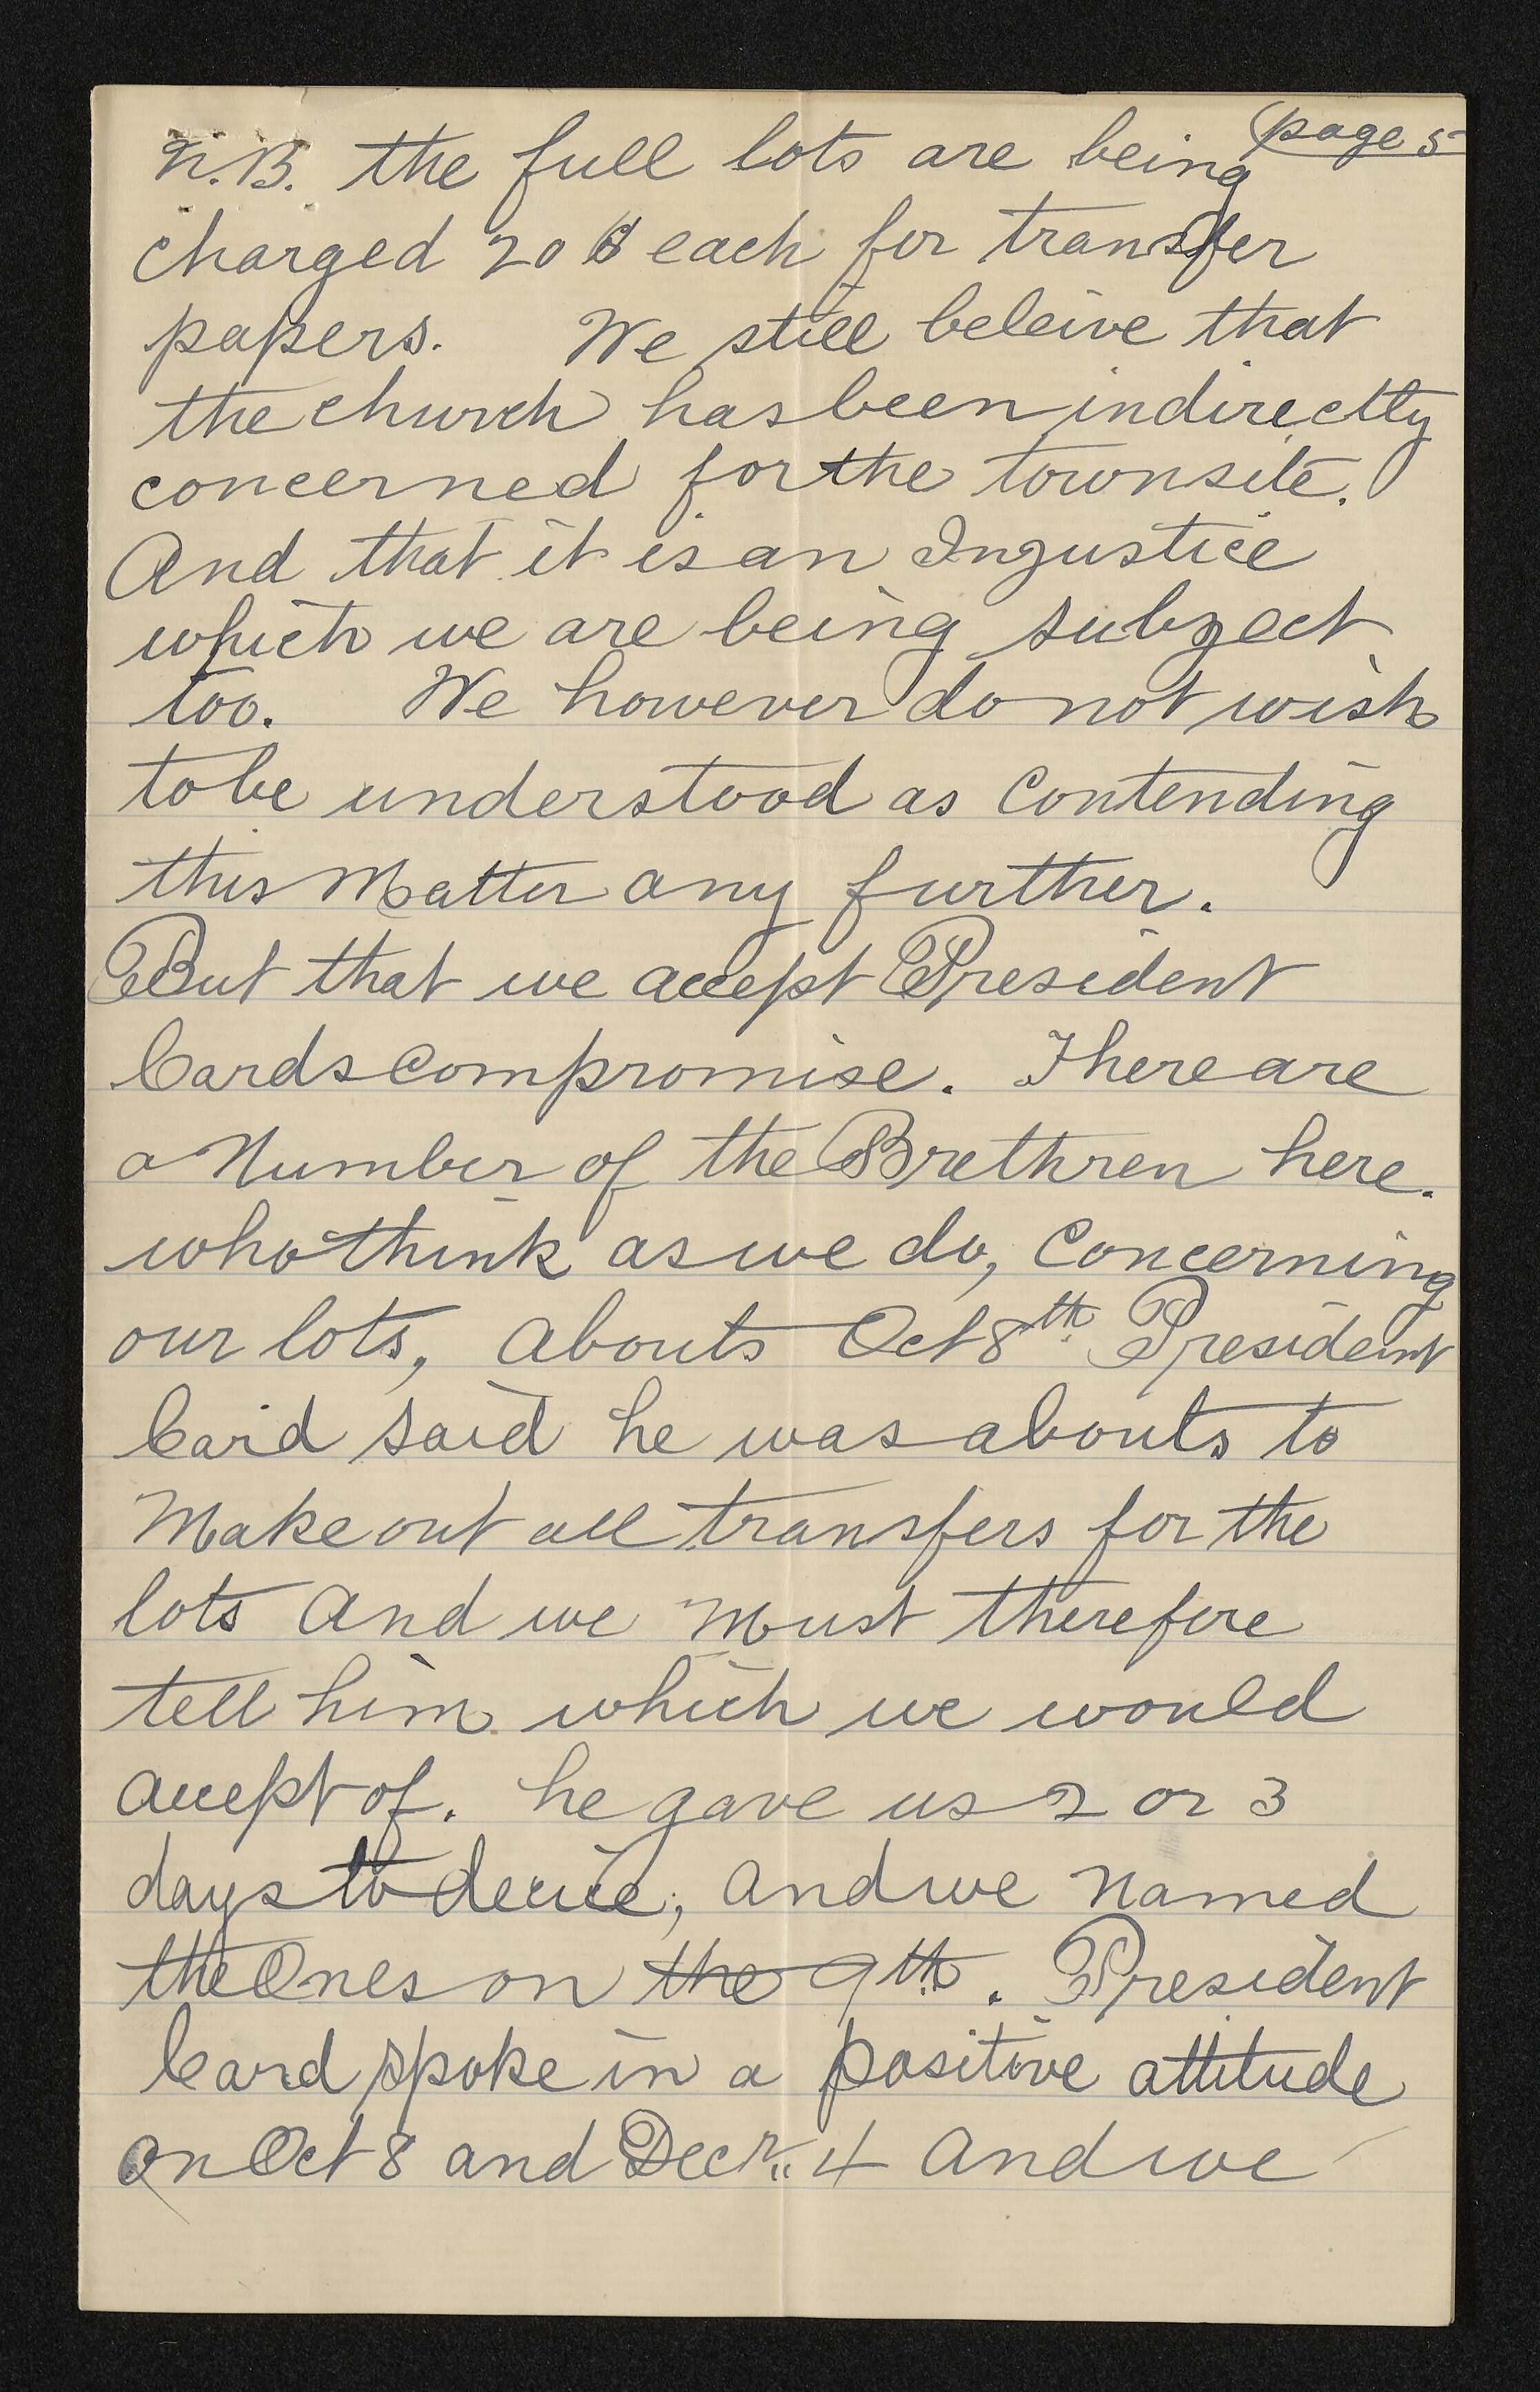 (page 5
N.B. the full lots are being
charged 20 $ each for transfer
papers. We still beleive that
the church has been indirectly
concerned for the townsite.
And that it is an Injustice
which we are being subject
too. We however do not wish
to be understood as Contending
this Matter any further.
But that we accept President
Cards compromise. There are
a Number of the Brethren here.
who think as we do, Concerning
our lots, abouts Oct 8th President
Card said he was abouts to
Make out all transfers for the
lots and we Must therefore
tell him which we would
accept of. he gave us 2 or 3
days to and we Named
the Ones on the 9th. President
Card spoke in a positive attitude
on Oct 8 and Decr 4 and we